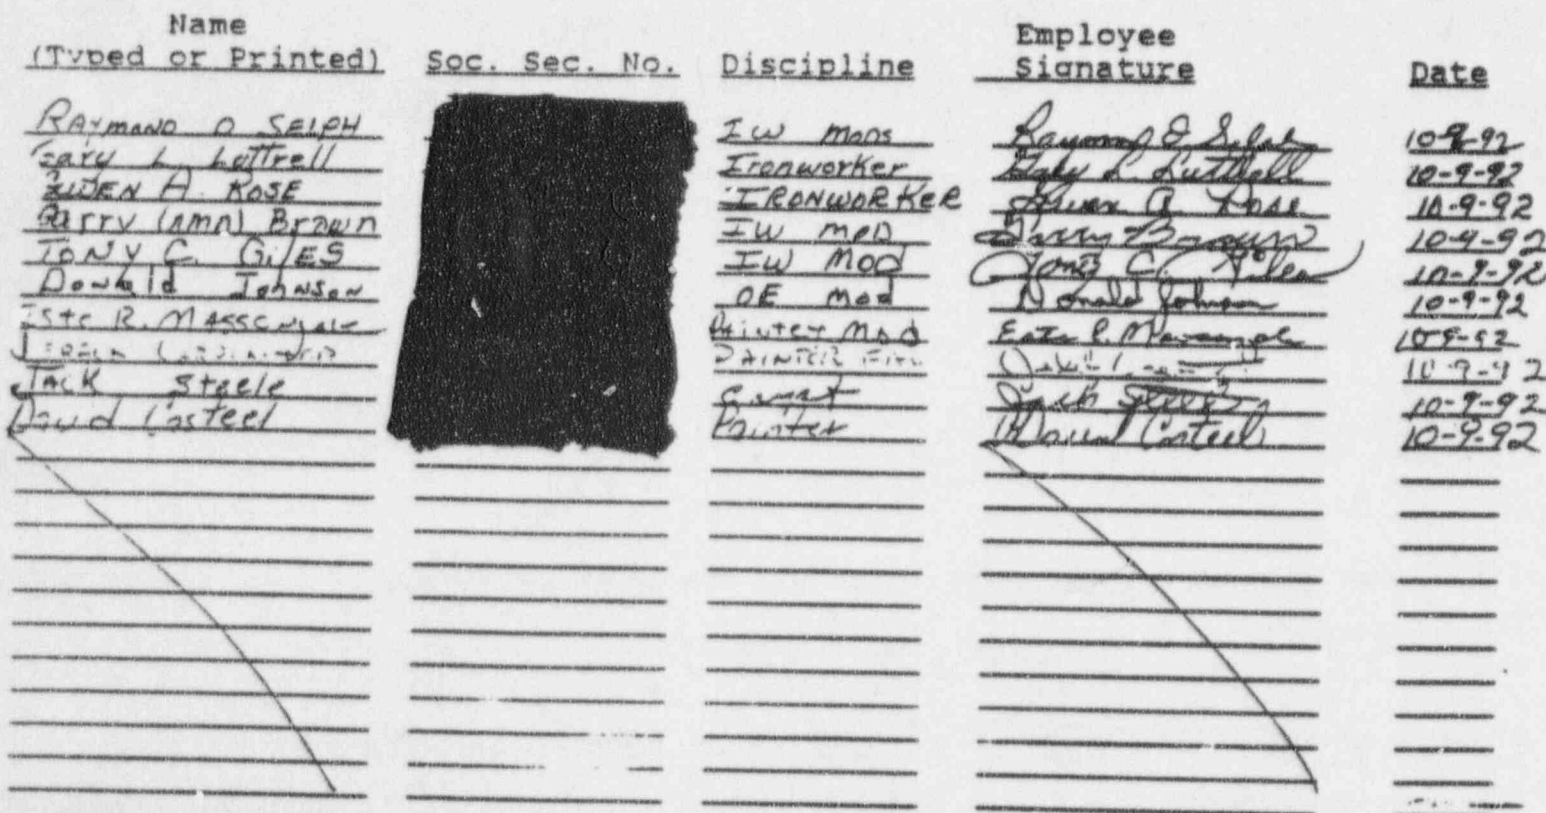 Name
(Typed or Printed) Soc. Sec. No. Discipline Employee Signature Date
RAYMOND D SEIPH IW MODS Raymond D Seiph 10-9-92
Gary L. Luttrell Ironworker Gary L. Luttrell 10-9-92
A. ROSE IRONWORKER A. Rose 10-9-92
(nmn) Brown IW MOD Brown 10-9-92
TONY C. GILES IW MOD Tony C. Giles 10-9-92
Donald Johnson OE Mod Donald Johnson 10-9-92
R. Painter Mod R. 10-9-92
PAINTER 10-9-92
JACK Steele Jack Steele 10-9-92
David Casteel Painter David Casteel 10-9-92